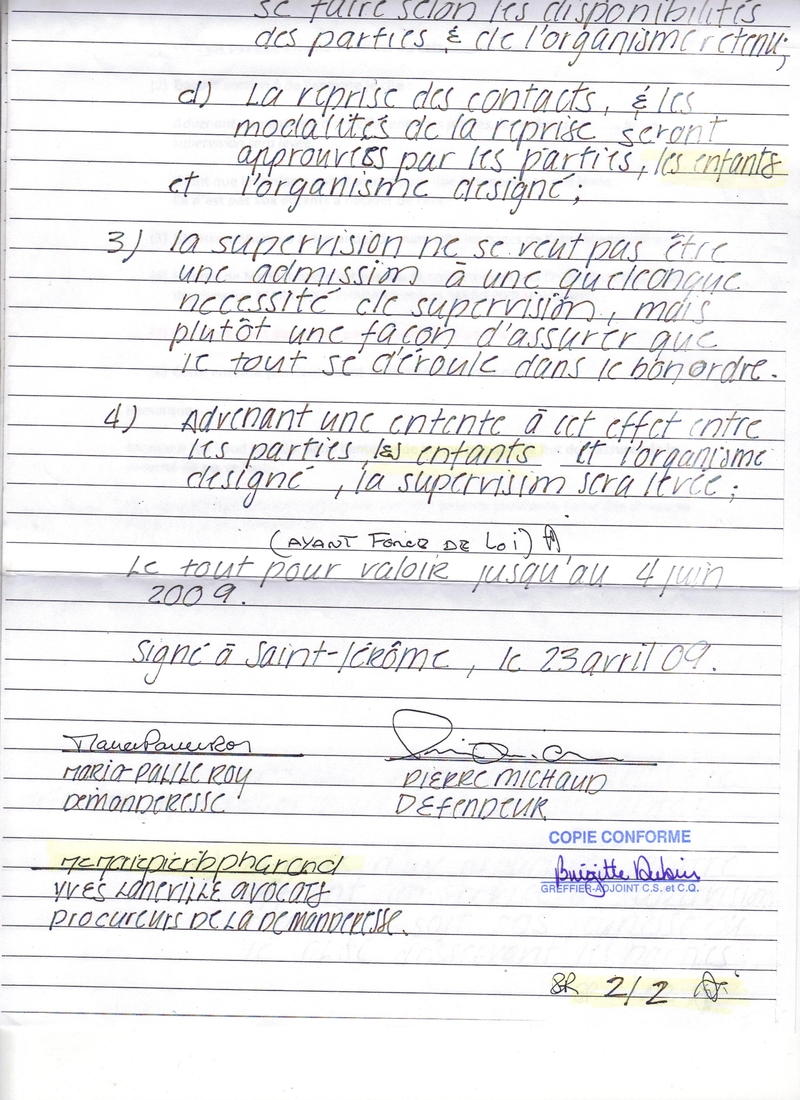 se faire selon les disponibilités
des parties & de l'organisme retenu;
d) La reprise des contacts, & les
modalités de la reprise seront
approuvées par les parties, les enfants
et l'organisme designé;
3) la supervision ne se veut pas être
une admission à une quelconque
necessité de supervision, mais
plutôt une façon d'assurer que
le tout se déroule dans le bon ordre.
4) Advenant une entente à cet effet entre
les parties, les enfants et l'organisme
designé, la supervision sera levée;
(AYANT Force DE Loi)
Le tout pour valoir jusqu'au 4 juin
2009.
Signé à Saint-Jérôme, le 23 avril 09.
MARIE-PAULE ROY PIERRE MICHAUD
DEMANDERESSE DÉFENDEUR
COPIE CONFORME
GREFFIER-ADJOINT C.S. et C.Q.
YVES AVOCATS
PROCUREURS DE LA DEMANDERESSE.
2/2